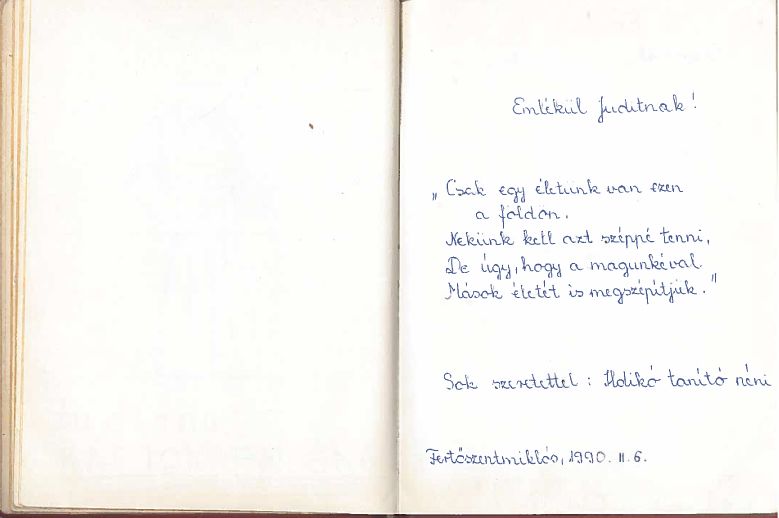 Emlékül Juditnak!
„Csak egy életünk van ezen
a földön.
Nekünk kell azt széppé tenni,
De úgy, hogy a magunkéval
Mások életét is megszépítjük."
Sok szeretettel: Ildikó tanító néni
Fertőszentmiklós, 1990. II. 6.